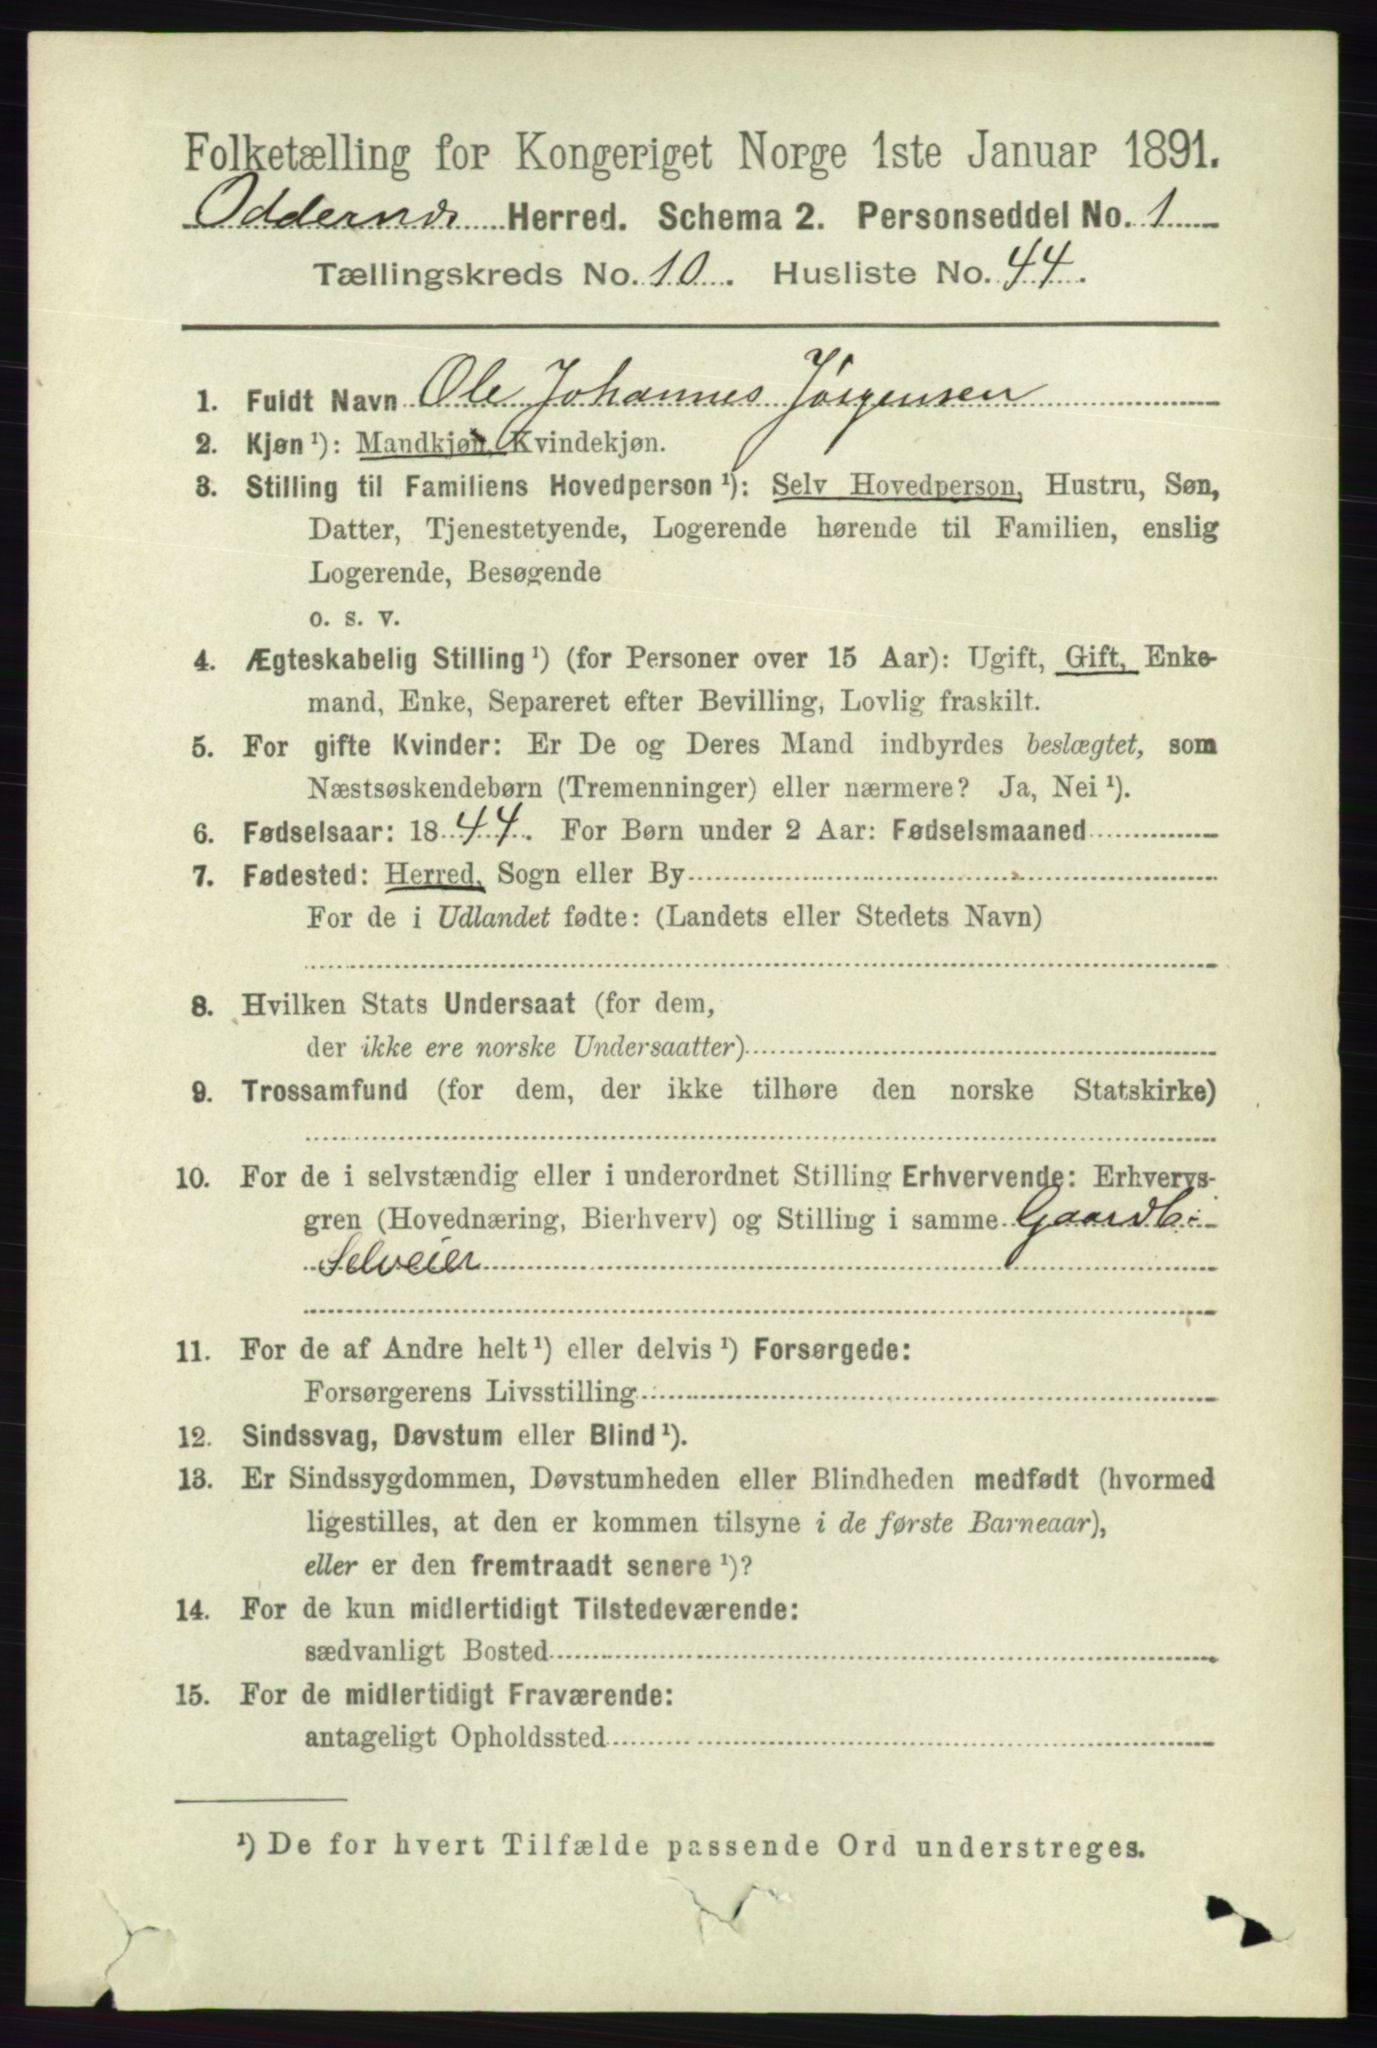 Folketælling for Kongeriget Norge 1ste Januar 1891.
Oddernes Herred. Schema 2. Personseddel No. 1
Tællingskreds No. 10. Husliste No. 44.
1. Fuldt Navn Ole Johannes Jørgensen
2. Kjøn¹): Mandkjøn, Kvindekjøn.
3. Stilling til Familiens Hovedperson¹): Selv Hovedperson, Hustru, Søn,
Datter, Tjenestetyende, Logerende hørende til Familien, enslig
Logerende, Besøgende
o. s. v.
4. Ægteskabelig Stilling¹) (for Personer over 15 Aar): Ugift, Gift, Enke-
mand, Enke, Separeret efter Bevilling, Lovlig fraskilt.
5. For gifte Kvinder: Er De og Deres Mand indbyrdes beslægtet, som
Næstsøskendebørn (Tremenninger) eller nærmere? Ja, Nei¹).
6. Fødselsaar: 1844. For Børn under 2 Aar: Fødselsmaaned
7. Fødested: Herred, Sogn eller By
For de i Udlandet fødte: (Landets eller Stedets Navn)
8. Hvilken Stats Undersaat (for dem,
der ikke ere norske Undersaatter)
9. Trossamfund (for dem, der ikke tilhøre den norske Statskirke)
10. For de i selvstændig eller i underordnet Stilling Erhvervende: Erhvervs-
gren (Hovednæring, Bierhverv) og Stilling i samme Gaardb:
Selveier
11. For de af Andre helt¹) eller delvis¹) Forsørgede:
Forsørgerens Livsstilling
12. Sindssvag, Døvstum eller Blind¹).
13. Er Sindssygdommen, Døvstumheden eller Blindheden medfødt (hvormed
ligestilles, at den er kommen tilsyne i de første Barneaar),
eller er den fremtraadt senere¹)?
14. For de kun midlertidigt Tilstedeværende:
sædvanligt Bosted
15. For de midlertidigt Fraværende:
antageligt Opholdssted
¹) De for hvert Tilfælde passende Ord understreges.